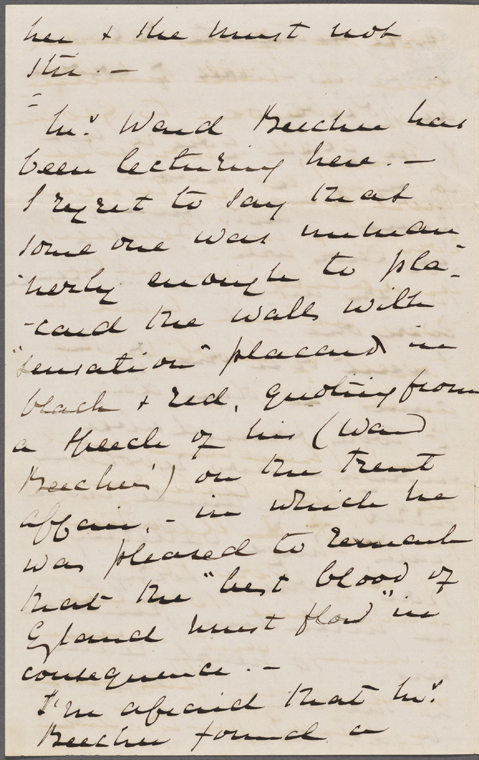 her & she must not
stir. –
Mr. Ward Beecher has
been lecturing here. –
I regret to say that
some one was unman
-nerly enough to pla-
-card the walls with
"sensation" placards in
black & red, quoting from
a speech of his (Ward
Beecher's) on the Trent
affair, – in which he
was pleased to remark
that the "best blood of
England must flow" in
consequence. –
I'm afraid that Mr.
Beecher found a